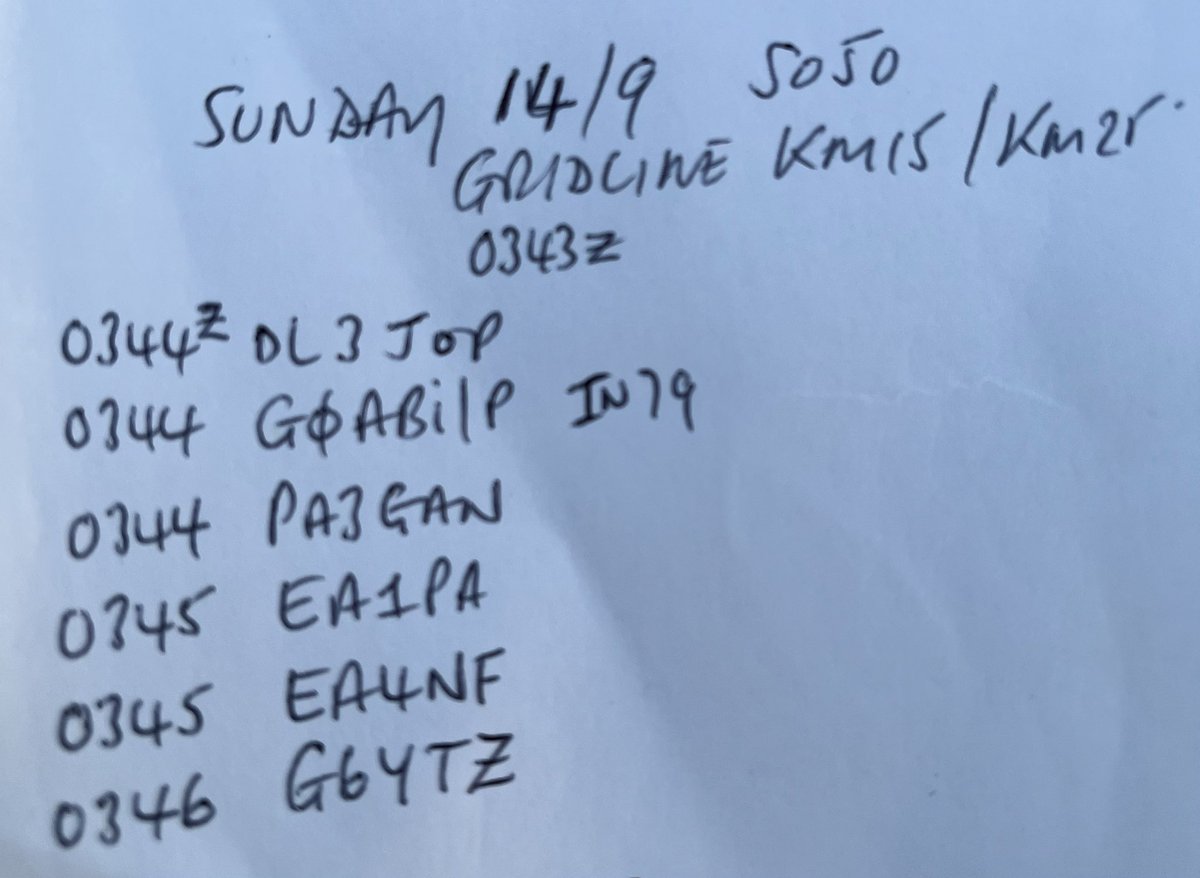 SUNDAY 14/9 SO50
GRIDLINE KM15 / KM25
0343Z
0344Z DL3JOP
0344 GØABi/P IN79
0344 PA3GAN
0345 EA1PA
0345 EA4NF
0346 G6YTZ